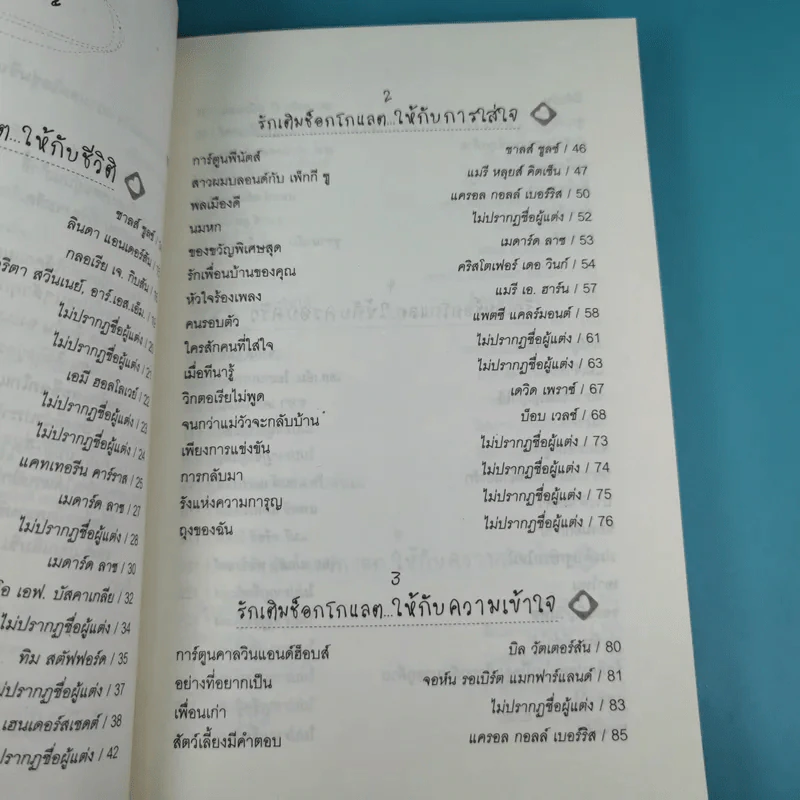 ให้กับชีวิติ
ชาลส์ ชูลซ์ /
ลินดา แอนเดอร์สัน /
กลอเรีย เจ. กิบสัน /
สวีนเนย์, อาร์.เอส.เอ็ม. /
ไม่ปรากฏชื่อผู้แต่ง / 20
ไม่ปรากฏชื่อผู้แต่ง / 21
เอมี ฮอลโลเวย์ / 22
ไม่ปรากฏชื่อผู้แต่ง / 23
ไม่ปรากฏชื่อผู้แต่ง / 24
แคทเทอรีน คาร์ราส / 25
เมดาร์ด ลาซ / 27
ไม่ปรากฏชื่อผู้แต่ง / 28
เมดาร์ด ลาซ / 30
เอฟ. บัสคาเกลีย / 32
ไม่ปรากฏชื่อผู้แต่ง / 34
ทิม สตัฟฟอร์ด / 35
ไม่ปรากฏชื่อผู้แต่ง / 37
เฮนเดอร์สเชดต์ / 38
ไม่ปรากฏชื่อผู้แต่ง / 42
2
รักเติมช็อกโกแลต...ให้กับการใส่ใจ
การ์ตูนพีนัตส์ ชาลส์ ชูลซ์ / 46
สาวผมบลอนด์กับ เพ็กกี ซู แมรี หลุยส์ คิตเซ็น / 47
พลเมืองดี แครอล กอลล์ เบอร์ริส / 50
นมหก ไม่ปรากฏชื่อผู้แต่ง / 52
ของขวัญพิเศษสุด เมดาร์ด ลาซ / 53
รักเพื่อนบ้านของคุณ คริสโตเฟอร์ เดอ วินก์ / 54
หัวใจร้องเพลง แมรี เอ. ฮาร์น / 57
คนรอบตัว แพตซี แคลร์มอนต์ / 58
ใครสักคนที่ใส่ใจ ไม่ปรากฏชื่อผู้แต่ง / 61
เมื่อทีนารู้ ไม่ปรากฏชื่อผู้แต่ง / 63
วิกตอเรียไม่พูด เดวิด เพราซ์ / 67
จนกว่าแม่วัวจะกลับบ้าน บ็อบ เวลซ์ / 68
เพียงการแข่งขัน ไม่ปรากฏชื่อผู้แต่ง / 73
การกลับมา ไม่ปรากฏชื่อผู้แต่ง / 74
รังแห่งความการุญ ไม่ปรากฏชื่อผู้แต่ง / 75
ถุงของฉัน ไม่ปรากฏชื่อผู้แต่ง / 76
3
รักเติมช็อกโกแลต...ให้กับความเข้าใจ
การ์ตูนคาลวินแอนด์ฮ็อบส์ บิล วัตเตอร์สัน / 80
อย่างที่อยากเป็น จอห์น รอเบิร์ต แมกฟาร์แลนด์ / 81
เพื่อนเก่า ไม่ปรากฏชื่อผู้แต่ง / 83
สัตว์เลี้ยงมีคำตอบ แครอล กอลล์ เบอร์ริส / 85